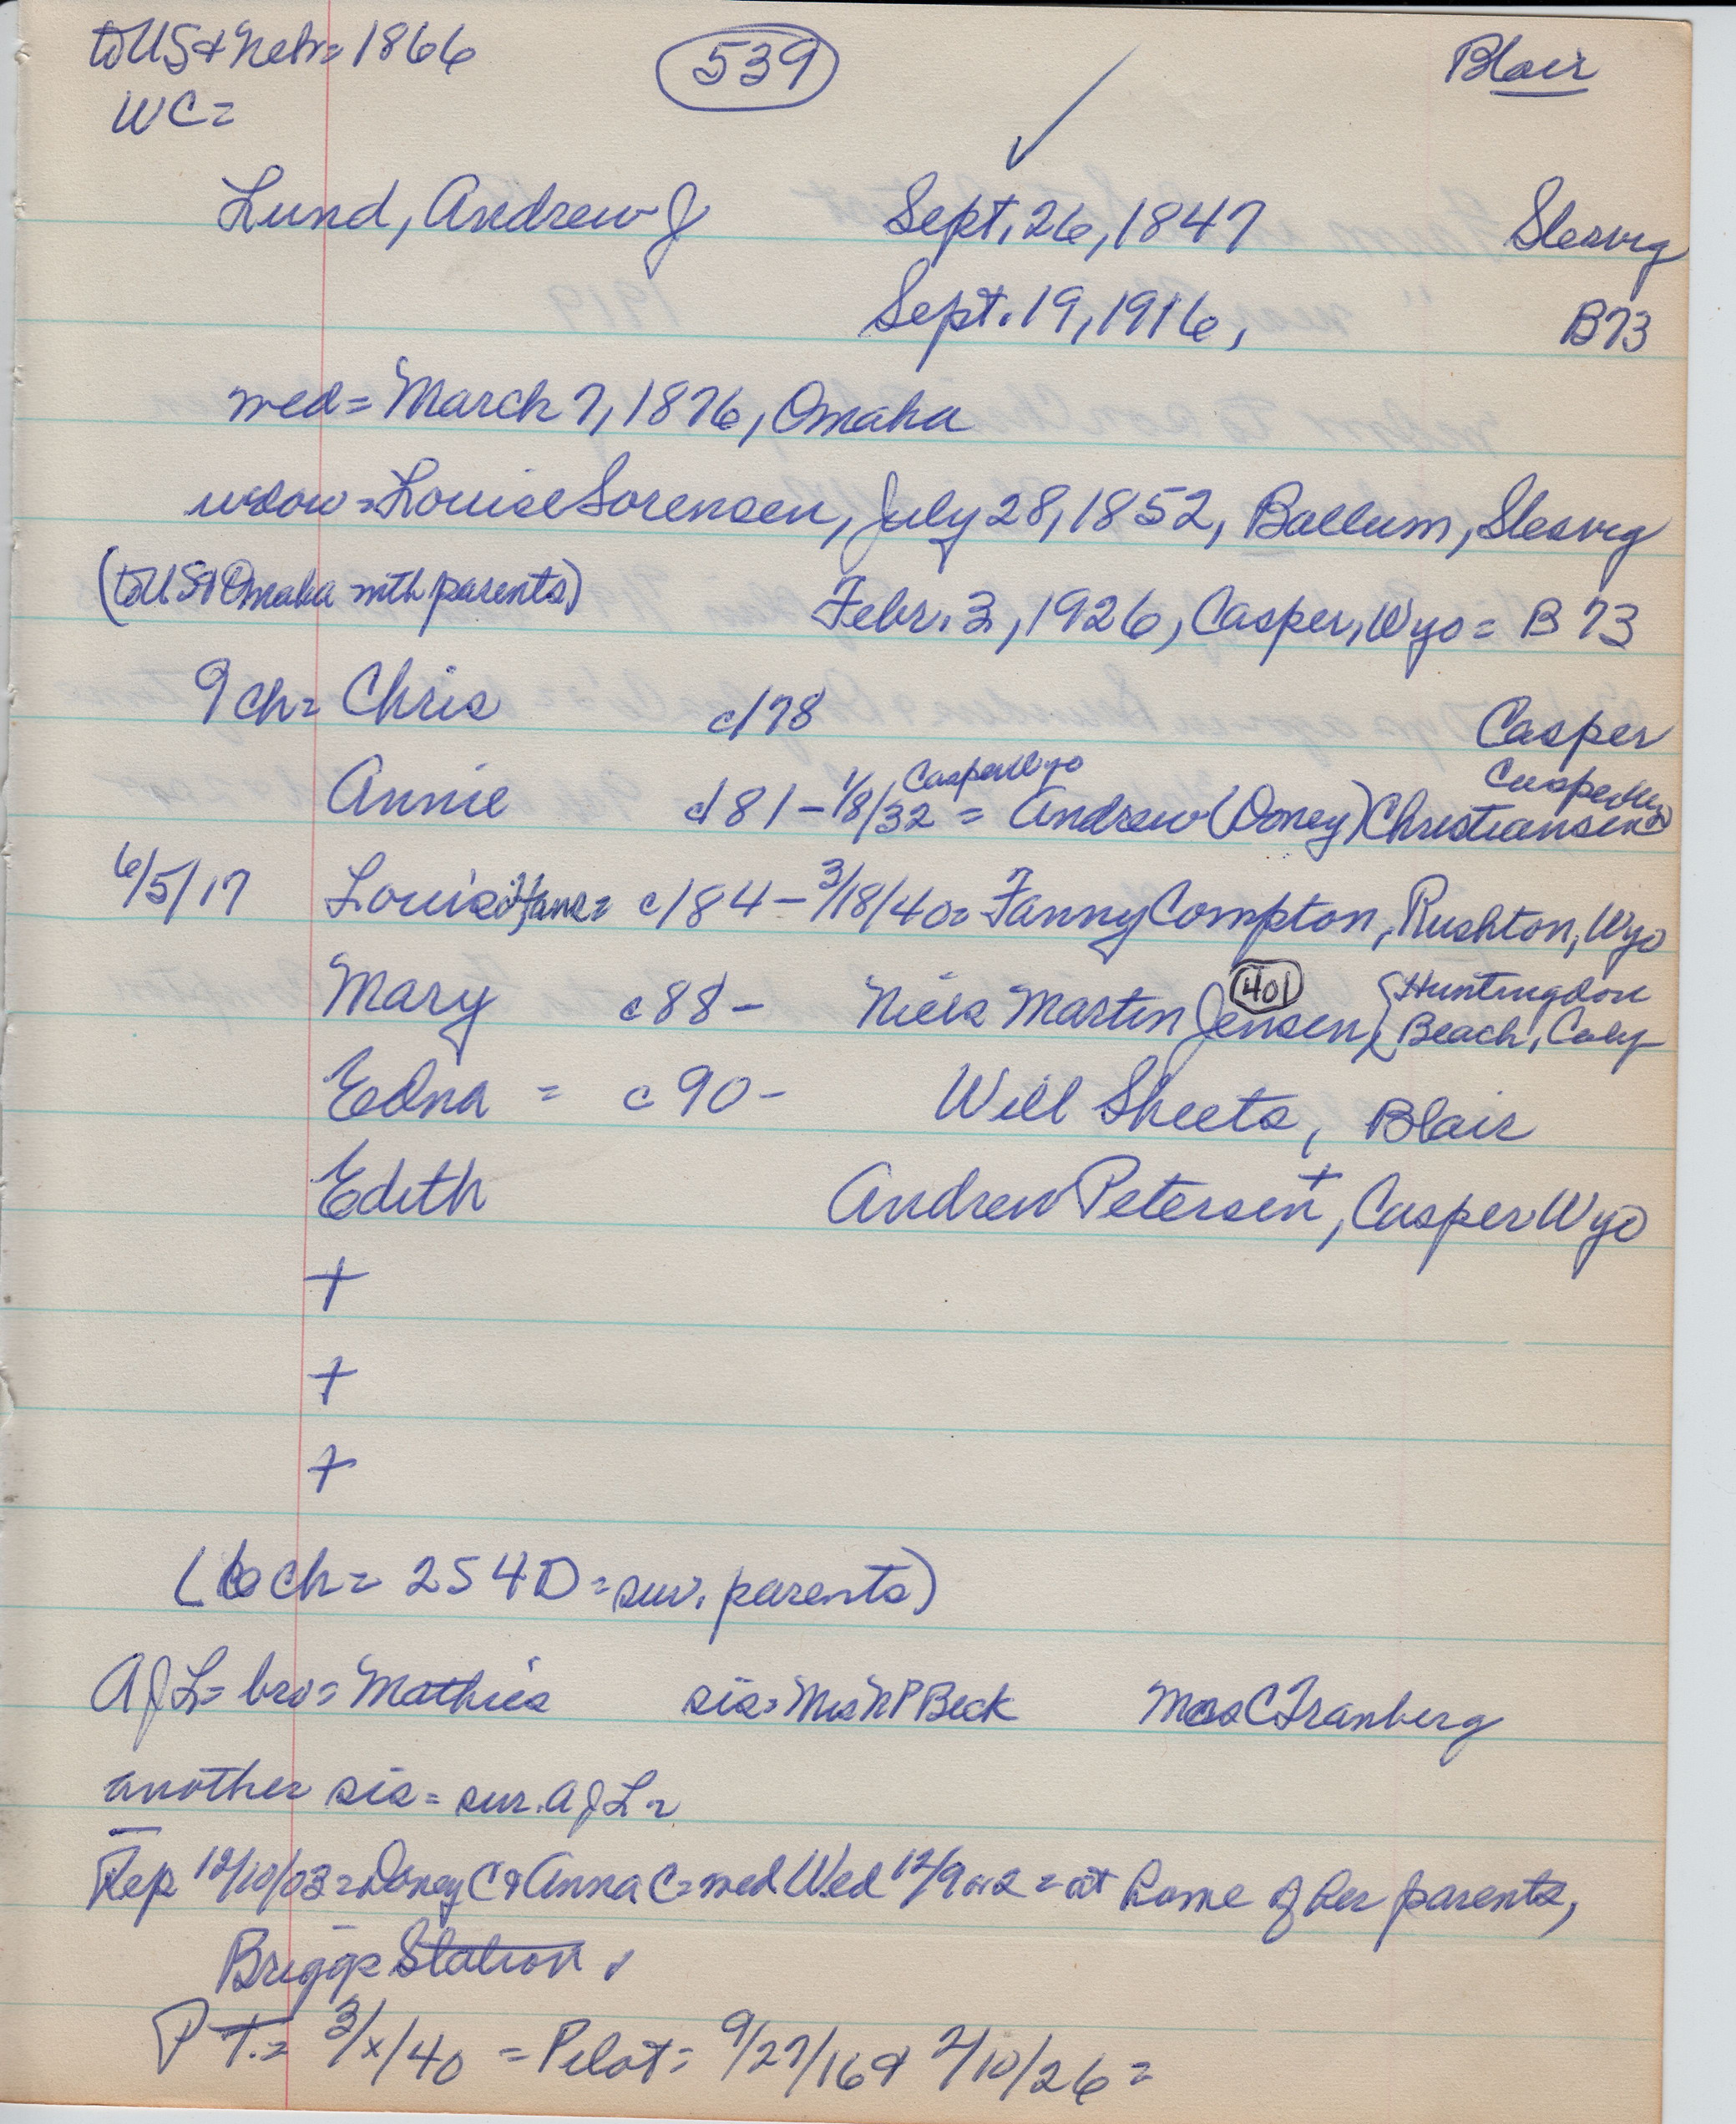 to US & Nebr = 1866 539 Blair
WC =
Lund, Andrew J Sept. 26, 1847 Slesvig
Sept. 19, 1916, B73
wed = March 7, 1876, Omaha
widow = Louise Sorensen, July 28, 1852, Ballum, Slesvig
(to US & Omaha with parents) Febr. 3, 1926, Casper, Wyo = B 73
9 ch = Chris c/78 Casper
Casper Wyo Casper Wyo
Annie c/81 - 1/8/32 = Andrew (Doney) Christiansen
6/5/17 Louis Hans = c/84 - 3/18/40 = Fanny Compton, Rushton, Wyo
Mary c 88 - Niels Martin Jensen, 401 {Huntingdon Beach, Caly
Edna = c 90 - Will Sheets, Blair
Edith Andrew Petersen +, Casper Wyo
+
+
+
(6 ch = 254D = sur. parents)
AJL = bro = Mathies sis = Mrs NP Beck Mrs C Tranberg
another sis = sur. AJL =
Rep 12/10/03 = Doney C & Anna C = wed Wed 12/9 = at home of her parents,
Briggs Station.
PT. = 3/x/40 = Pilot = 9/27/16 & 2/10/26 =